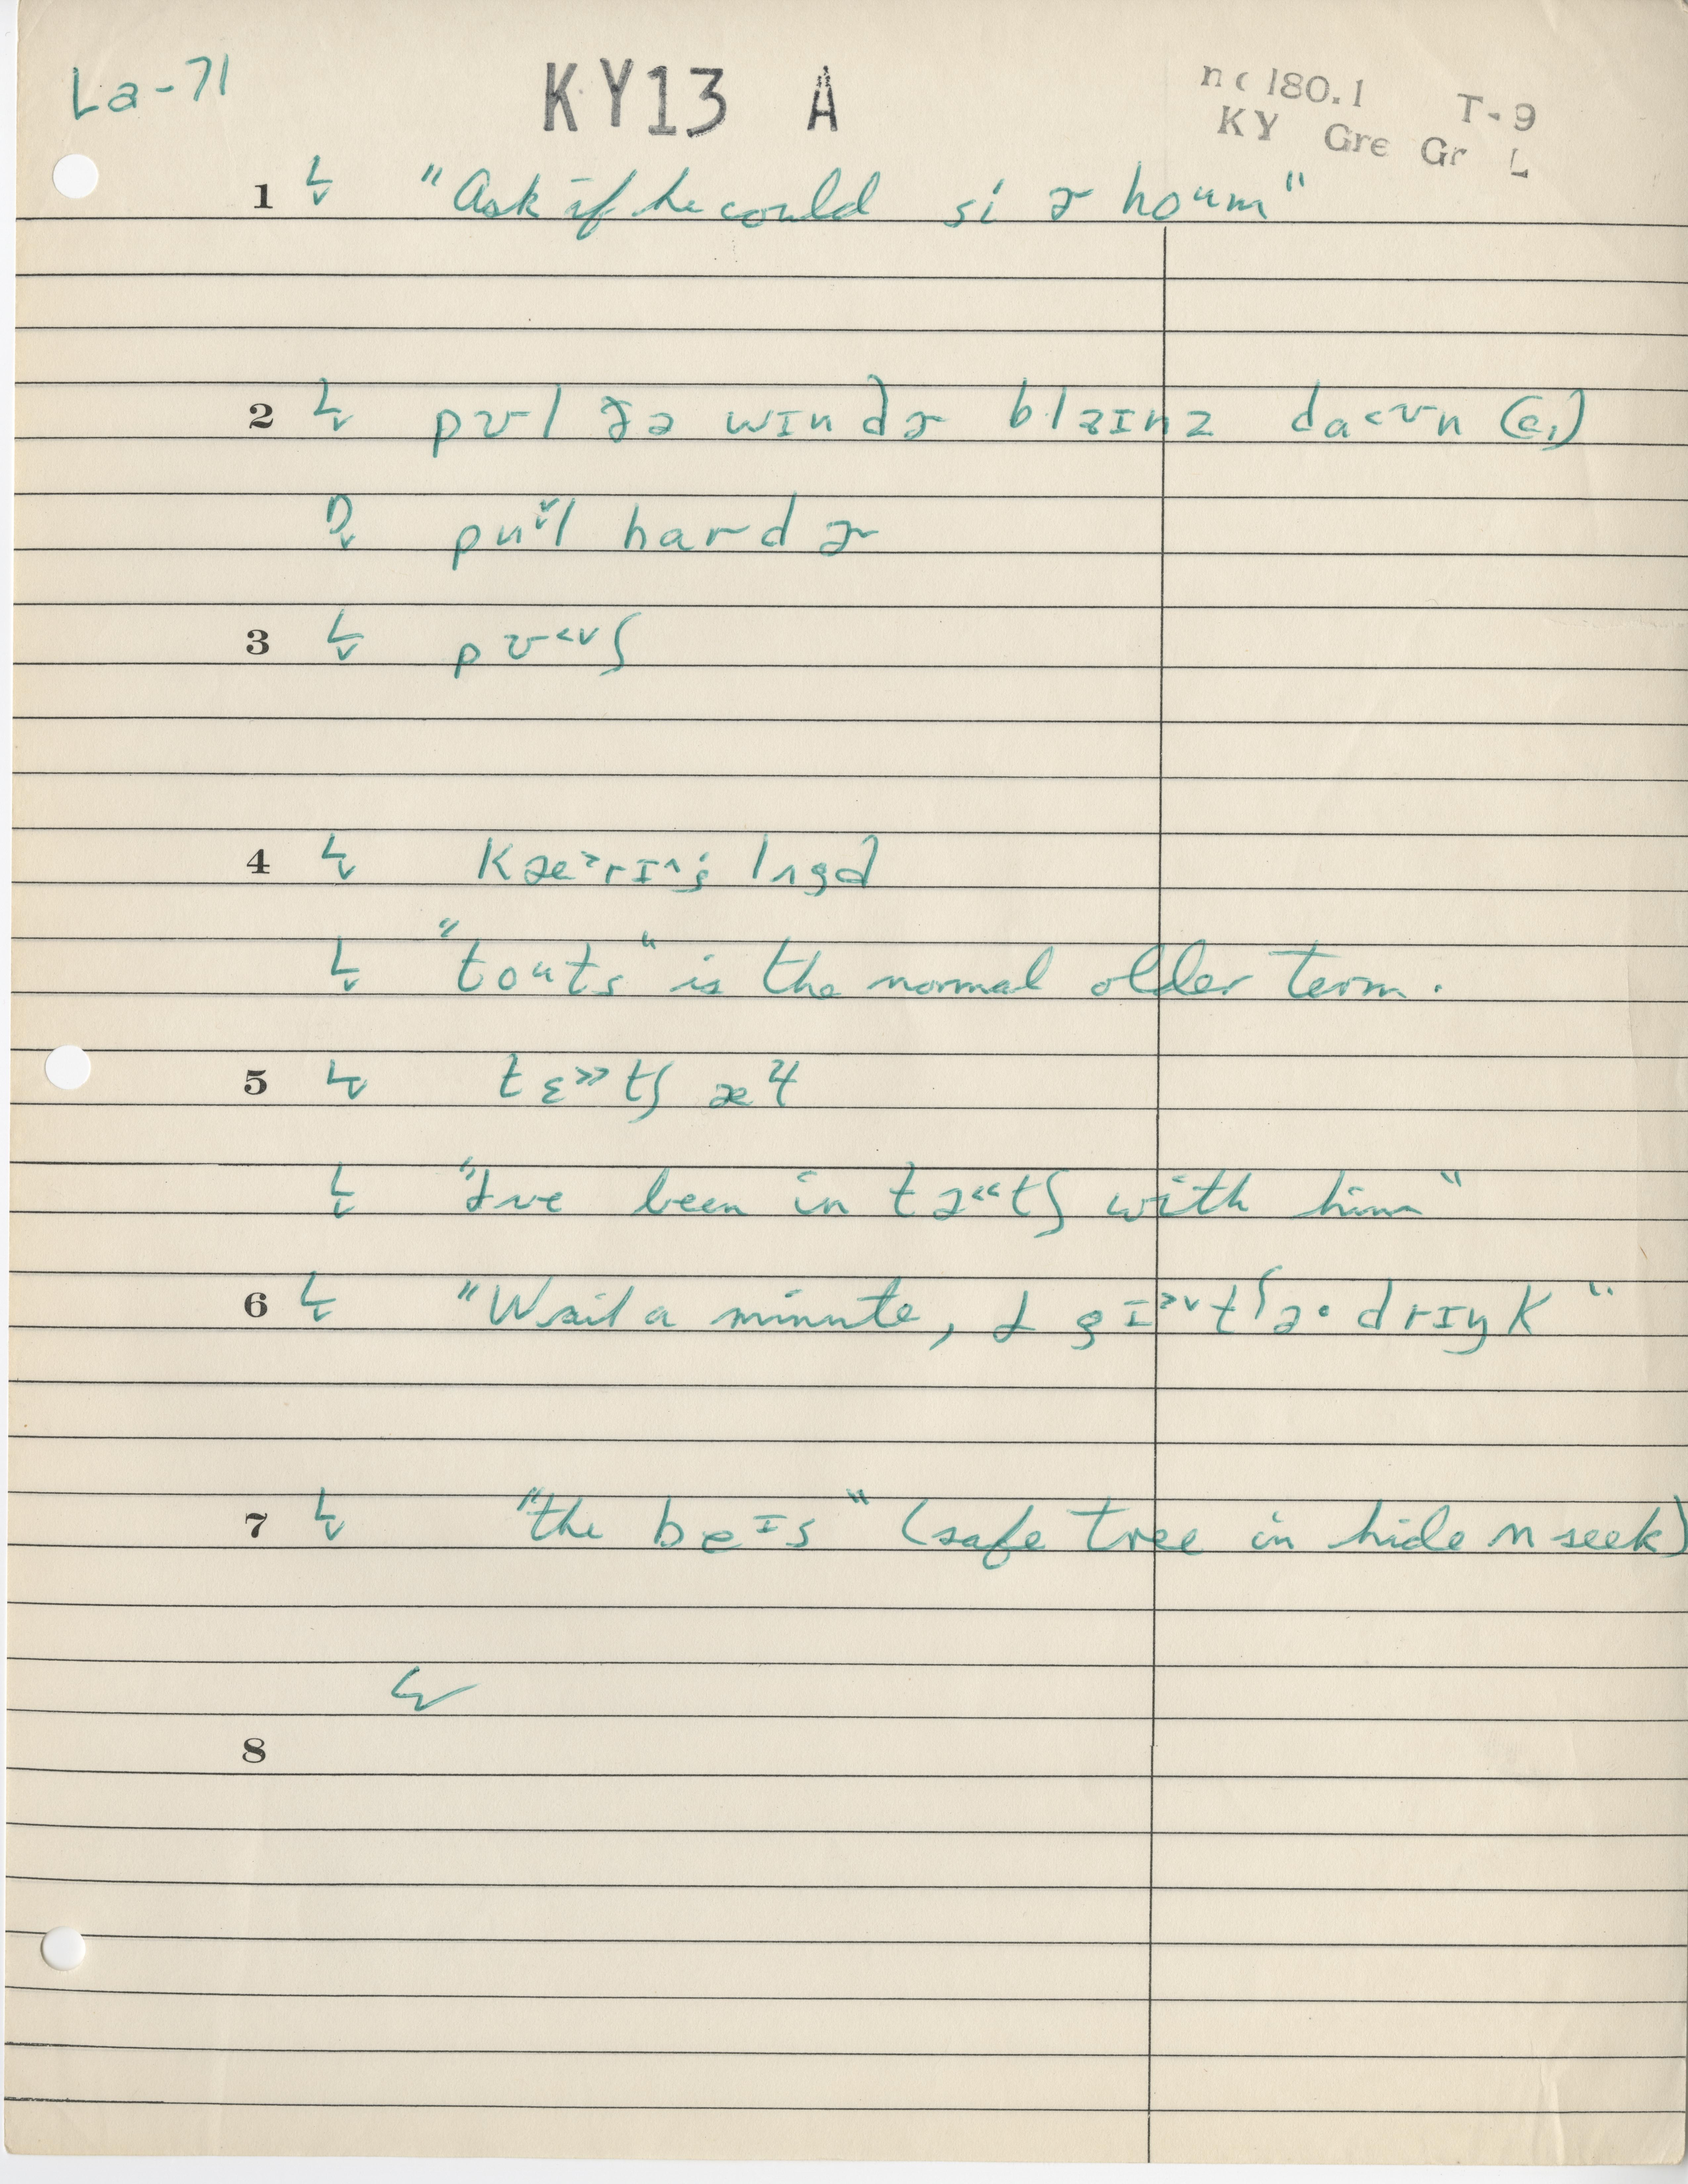 La-71 KY13 A nc 180.1 T-9
KY Gre Gr L
1 L "Ask if he could si ɚ houm"
2 L pʊl ðə wɪndɚ blaɪnz da<ʊn (c,)
puᵛl hardɚ
3 L pʊ<ᵛʃ
4 L kæᵊrɪ^ŋ lʌgd
L "touts" is the normal older term.
5 L tɛ>>tʃ
L "I've been in tə<<tʃ with him"
6 L "Wait a minute, I gɪ>ᵛtʃə· drɪŋk"
7 L "the beɪs" (safe tree in hide n seek)
8